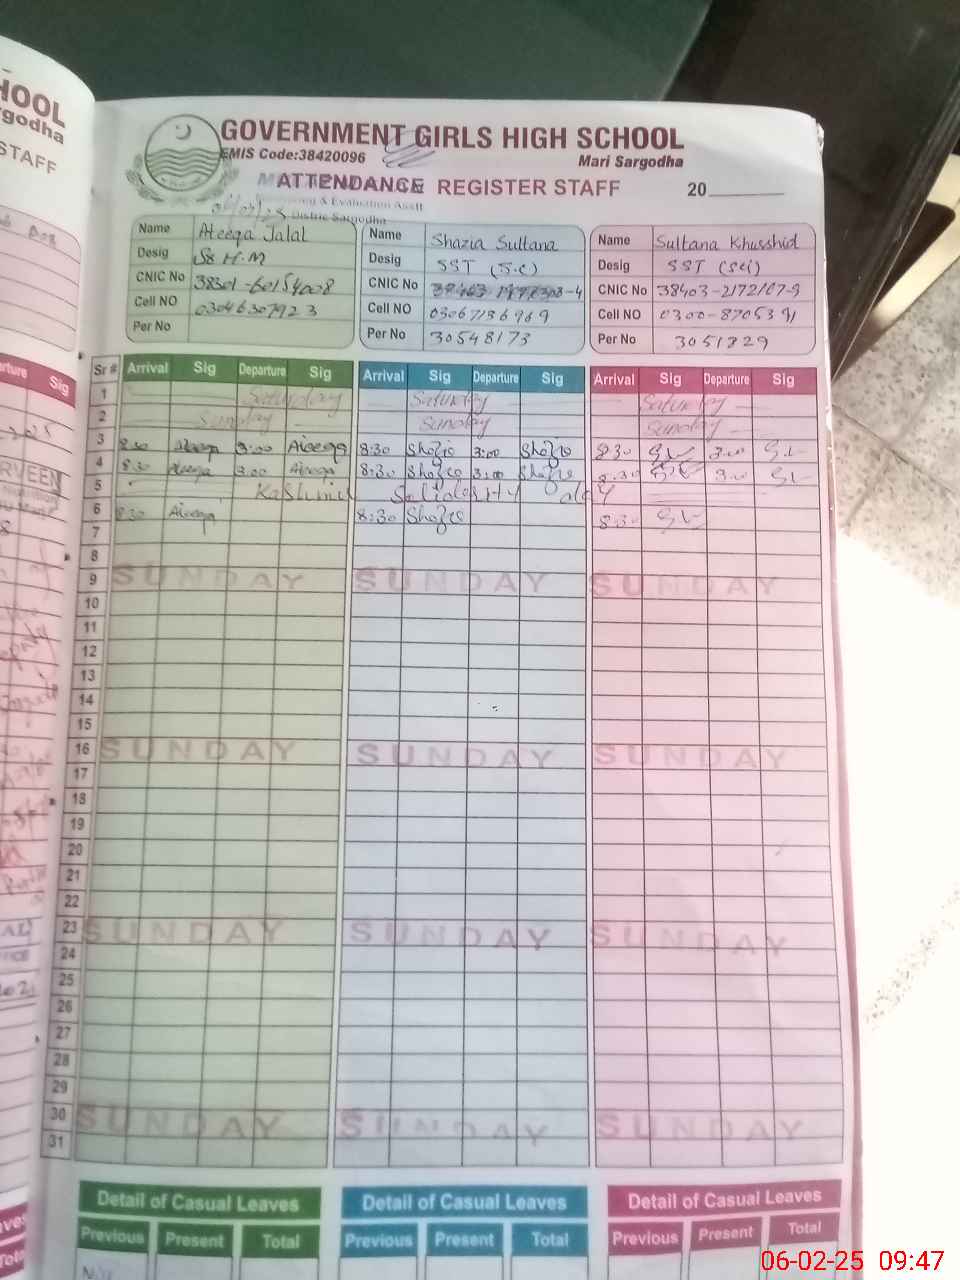 GOVERNMENT GIRLS HIGH SCHOOL
EMIS Code:38420096
Mari Sargodha
ATTENDANCE REGISTER STAFF 20
& Evaluation Asstt
Distric Sargodha
Name Ateeqa Jalal
Desig H.M
CNIC No 38301-60154008
Cell NO 03046307923
Per No
Name Shazia Sultana
Desig SST (S.C)
CNIC No
Cell NO 03067136969
Per No 30548173
Name Sultana Khurshid
Desig SST (Sci)
CNIC No 38403-2172107-9
Cell NO
Per No 3051329
Sr # Arrival Sig Departure Sig Arrival Sig Departure Sig Arrival Sig Departure Sig
1 Saturday Saturday Saturday
2 Sunday Sunday Sunday
3 8:30 Ateeqa 3:00 Ateeqa 8:30 Shazia 3:00 Shazia 8:30 3:00
4 8:30 Ateeqa 3:00 Ateeqa 8:30 Shazia 3:00 Shazia 8:30 3:00
5 Kashmir Solidarity Day
6 8:30 Ateeqa 8:30 Shazia 8:30
7
8
9 SUNDAY SUNDAY SUNDAY
10
11
12
13
14
15
16 SUNDAY SUNDAY SUNDAY
17
18
19
20
21
22
23 SUNDAY SUNDAY SUNDAY
24
25
26
27
28
29
30 SUNDAY SUNDAY SUNDAY
31
Detail of Casual Leaves Detail of Casual Leaves Detail of Casual Leaves
Previous Present Total Previous Present Total Previous Present Total
06-02-25 09:47